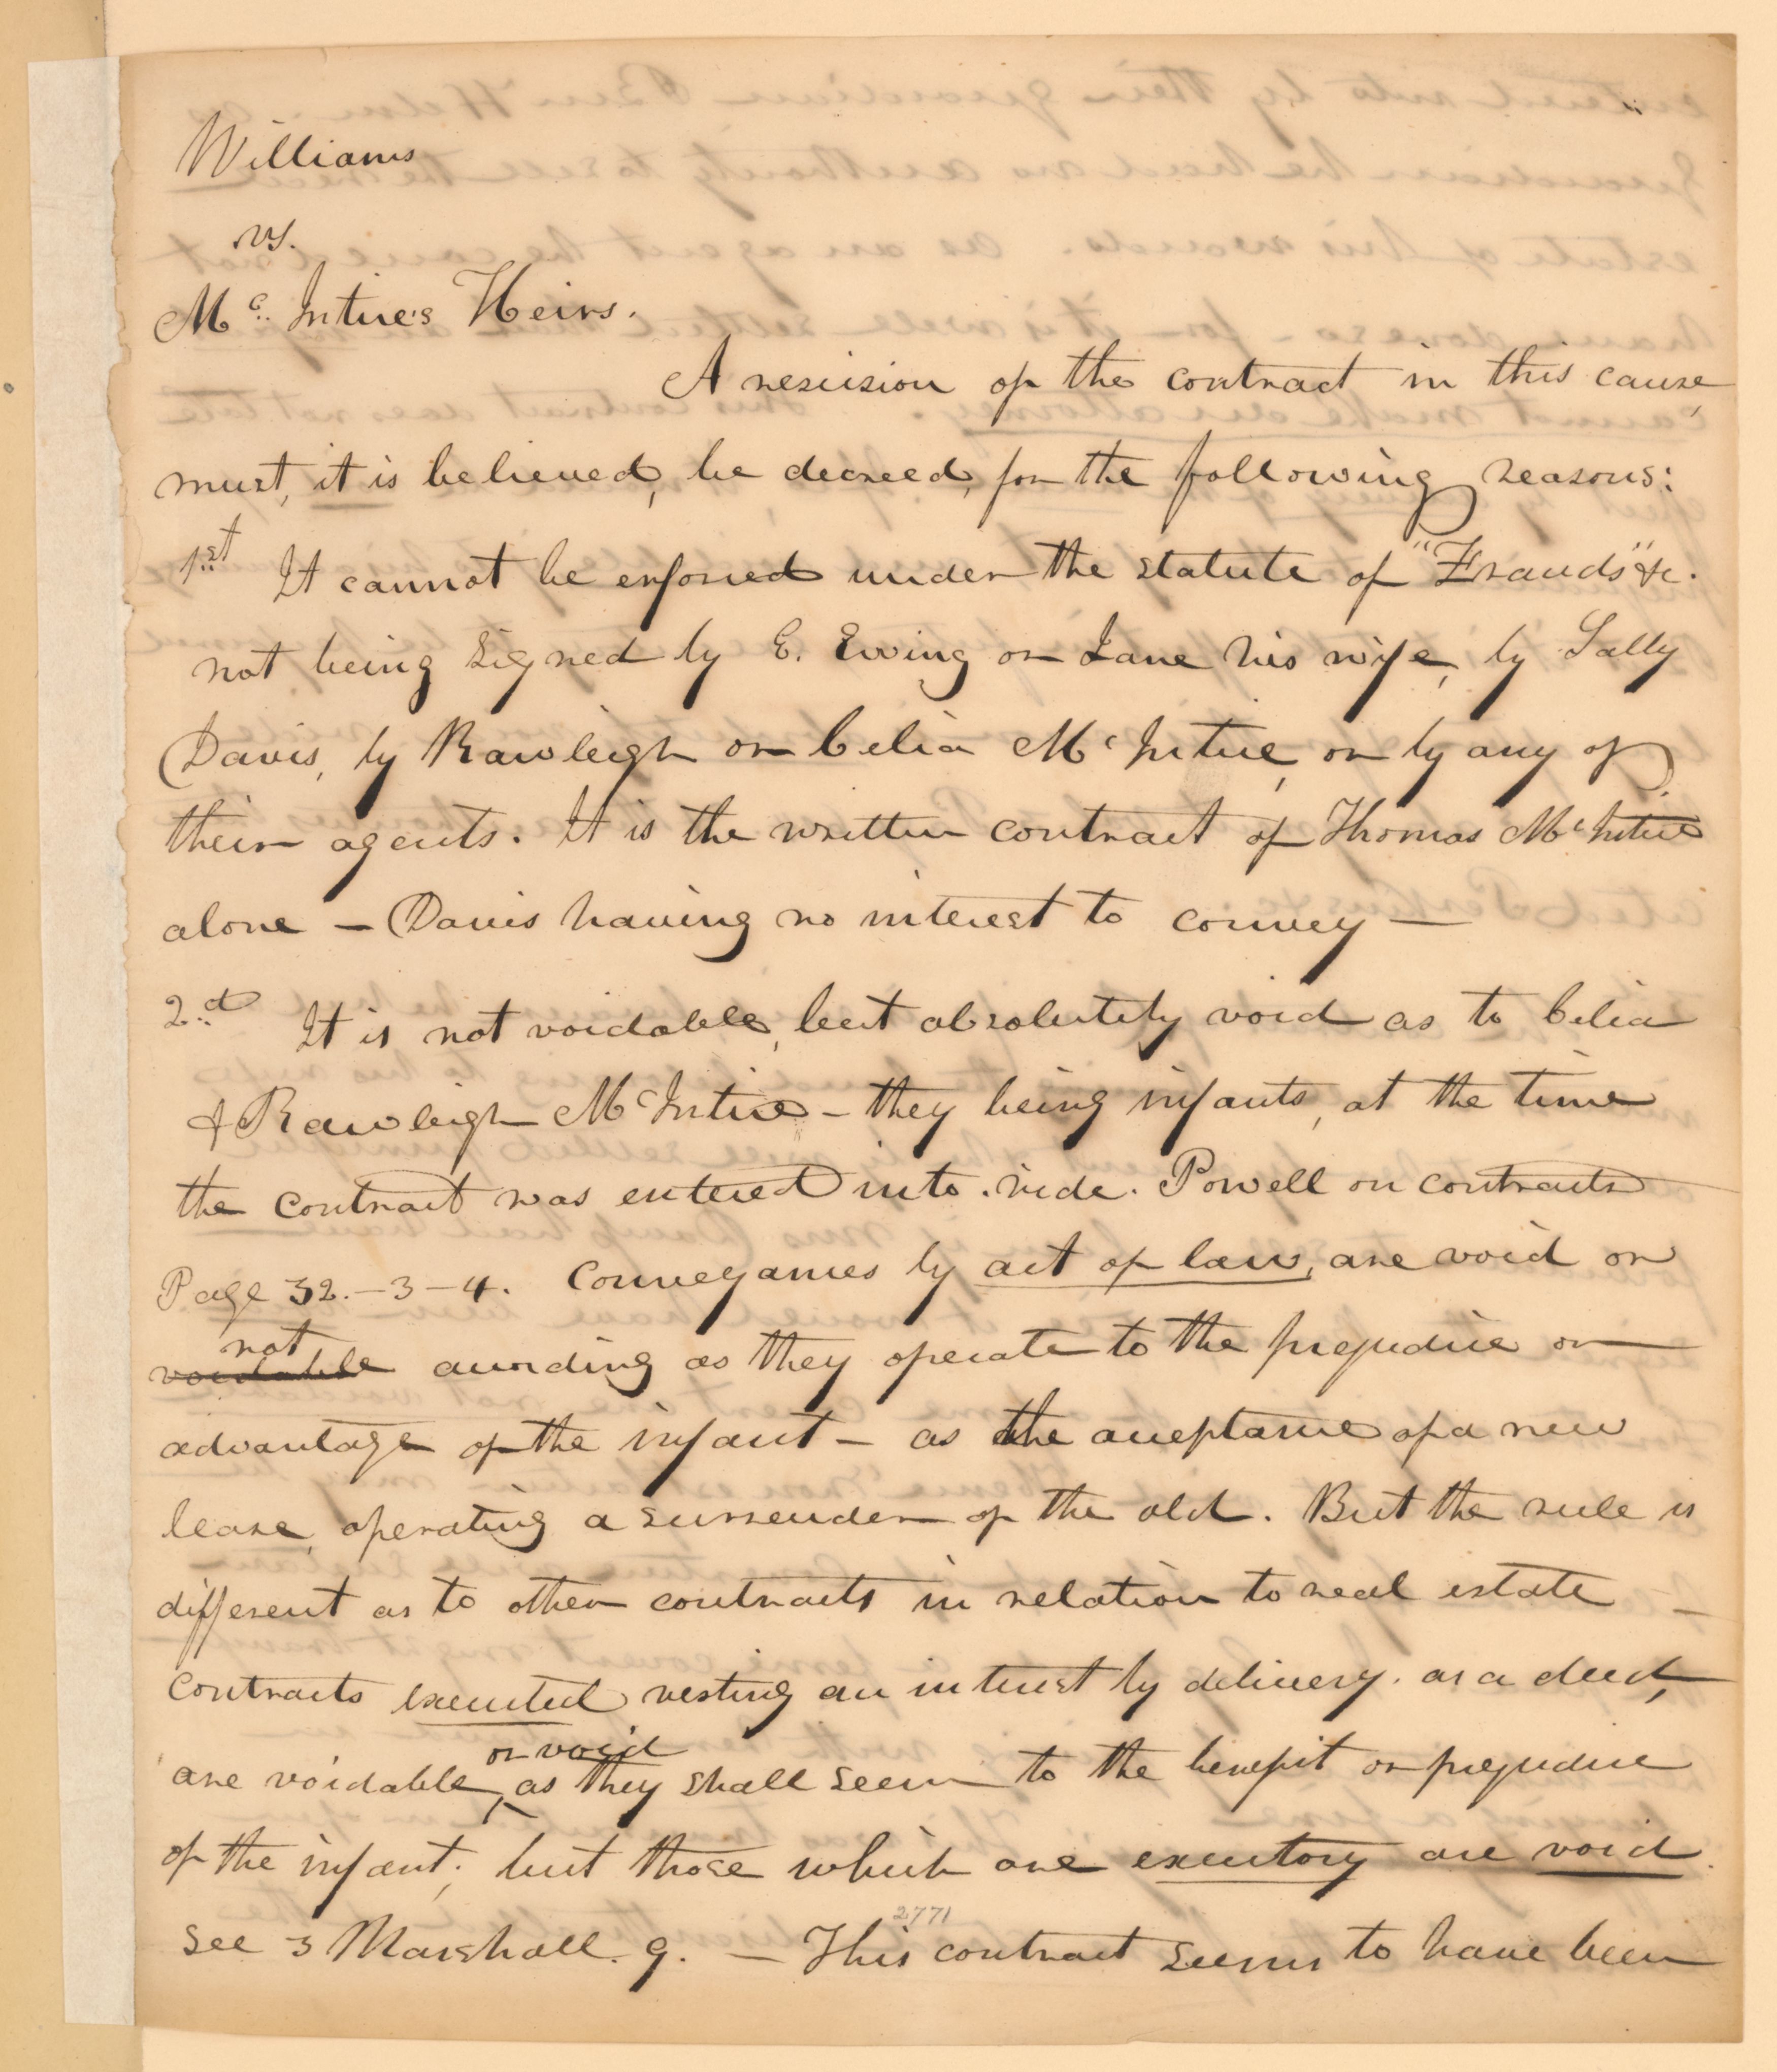 Williams
vs.
Mc. Intire's Heirs.
A rescision of the contract in this cause,
must, it is believed, be decreed, for the following reasons:
1st It cannot be enforced under the statute of "Frauds" &c.
not being signed by E. Ewing or Jane his wife, by Sally
Davis, by Rawleigh or Celia McIntire, or by any of
their agents. It is the written contract of Thomas McIntire
alone — Davis having no interest to convey —
2.d It is not voidable, but absolutely void as to Celia
& Rawleigh McIntire - they being infants, at the time
the contract was entered into. vide. Powell on contracts
Page 32.-3-4. Conveyances by act of law, are void or
not
voidable according as they operate to the prejudice or
advantage of the infant — as the acceptance of a new
lease, operating a surrender of the old. But the rule is
different as to other contracts in relation to real estate —
contracts executed vesting an interest by delivery. as a deed,
or void
are voidable, as they shall seem to the benefit or prejudice
of the infant; but those which are executory are void.
See 3 Marshall. 9. — This contract seems to have been
2771